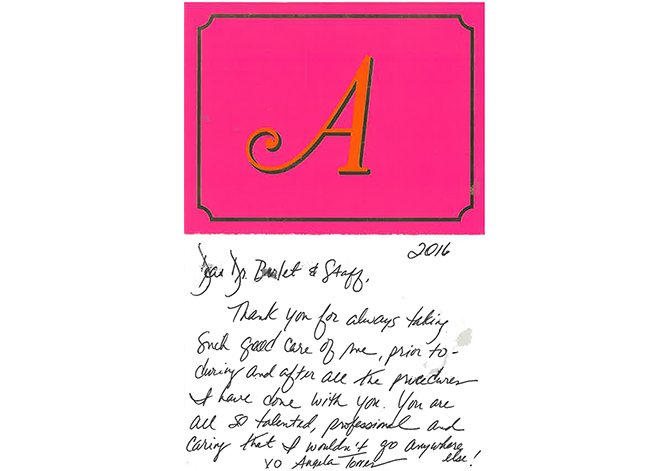 A
2016
Dear Dr. Burlet & Staff,
Thank you for always taking
such good care of me, prior to -
during and after all the procedures
I have done with you. You are
all so talented, professional and
caring that I wouldn't go anywhere
else!
xo Angela Torres